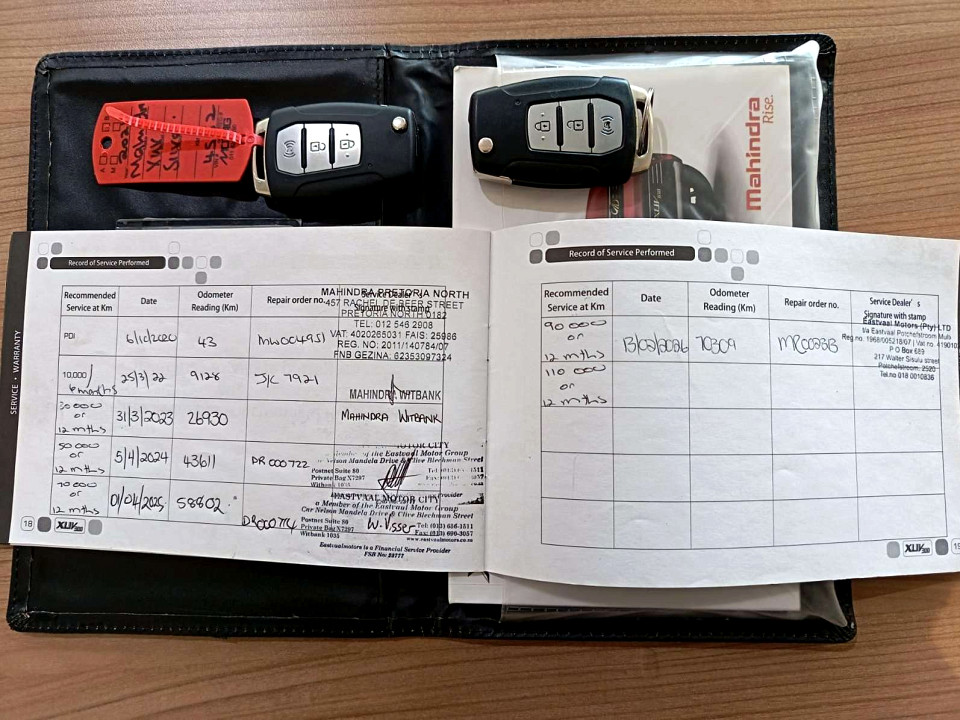 2021
XUV
Silver
Mahindra
Rise.
SERVICE • WARRANTY
Record of Service Performed
Recommended Service at Km
Date
Odometer Reading (Km)
Repair order no.
Service Dealer's Signature with stamp
MAHINDRA PRETORIA NORTH
457 RACHEL DE BEER STREET
PRETORIA NORTH 0182
TEL: 012 546 2908
VAT: 4020265031 FAIS: 25986
REG. NO: 2011/140784/07
FNB GEZINA: 62353097324
PDI
43
MW004951
10,000/
6 months
25/3/22
9128
J/C 7921
MAHINDRA WITBANK
30 000
or
12 mths
31/3/2023
26930
MAHINDRA WITBANK
50 000
or
12 mths
5/4/2024
43611
DR 000722
MOTOR CITY
Member of the Eastvaal Motor Group
Nelson Mandela Drive & Clive Blechman Street
Postnet Suite 80
Private Bag X7297
Witbank 1035
70 000
or
12 mths
01/04/2025
58802
EASTVAAL MOTOR CITY
a Member of the Eastvaal Motor Group
Cnr Nelson Mandela Drive & Clive Blechman Street
Postnet Suite 80
Private Bag X7297
Witbank 1035
W. Visser
Tel: (013) 656-1511
Fax: (013) 690-3057
www.eastvaalmotors.co.za
Eastvaalmotors is a Financial Service Provider
FSB No: 23777
18
XUV300
Record of Service Performed
Recommended Service at Km
Date
Odometer Reading (Km)
Repair order no.
Service Dealer's Signature with stamp
90 000
or
12 mths
13/02/2026
70309
Eastvaal Motors (Pty) LTD
t/a Eastvaal Potchefstroom Multi
Reg no. 1968/005218/07 | Vat no.
P O Box 689
217 Walter Sisulu street
Potchefstroom, 2520
Tel.no 018 0010836
110 000
or
12 mths
XUV300